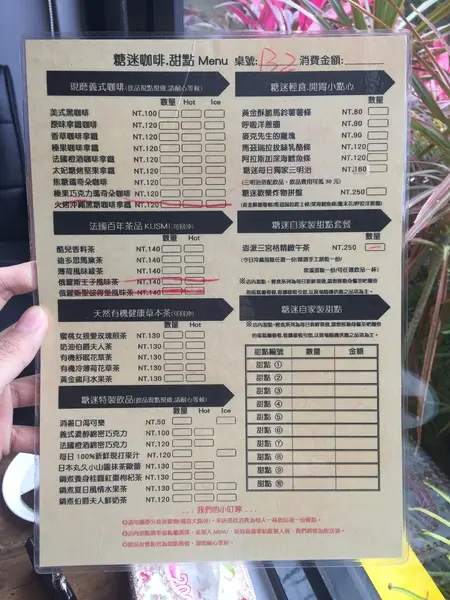 糖迷咖啡.甜點 Menu 桌號: B2 消費金額:
現磨義式咖啡(飲品現點現做,請耐心等候)
數量 Hot Ice
美式黑咖啡 NT.100
原味拿鐵咖啡 NT.120
香草咖啡拿鐵 NT.120
榛果咖啡拿鐵 NT.120
法國橙酒咖啡拿鐵 NT.120
太妃糖倦堅果拿鐵 NT.120
焦糖瑪奇朵咖啡 NT.120
榛果巧克力瑪奇朵咖啡 NT.120
火烤沖繩黑糖咖啡拿鐵 NT.120
法國百年茶品 KUSMI(可回沖)
數量 Hot
酷兒香料茶 NT.140
迪多思瑪黛茶 NT.140
薄荷風味綠茶 NT.140
俄羅斯王子風味茶 NT.140
俄羅斯聖彼得堡風味茶 NT.140
天然有機健康草本茶(可回沖)
數量 Hot
蜜桃女孩愛玫瑰煎茶 NT.130
奶油伯爵夫人茶 NT.130
有機舒眠花草茶 NT.130
有機冷薄荷花草茶 NT.130
黃金飆月水果茶 NT.130
糖迷特製飲品(飲品現點現做,請耐心等候)
數量 Hot Ice
消暑口渴可樂 NT.50
義式濃醇綿密巧克力 NT.100
法國橙酒綿密巧克力 NT.120
每日100%新鮮現打果汁 NT.120
日本丸久小山園抹茶歐蕾 NT.130
鍋煮養身桂圓紅棗枸杞茶 NT.130
鍋煮夏日風情水果茶 NT.130
鍋煮伯爵夫人鮮奶茶 NT.120
糖迷輕食.開胃小點心
數量
黃金酥脆馬鈴薯薯條 NT.80
呼啦洋蔥圈 NT.90
麥克先生的雞塊 NT.90
馬茲瑞拉拔絲乳酪條 NT.120
阿拉斯加深海鱈魚條 NT.120
糖迷每日獨家三明治 NT.160
(三明治搭配飲品,飲品費用可抵30元)
糖迷歡樂炸物拼盤 NT.250
糖迷自家製甜點套餐
數量
澎派三宮格精緻午茶 NT.250
糖迷自家製甜點
甜點編號 數量 金額
甜點 ①
甜點 ②
甜點 ③
甜點 ④
甜點 ⑤
甜點 ⑥
甜點 ⑦
甜點 ⑧
甜點 ⑨
甜點 ⑩
...我們的小叮嚀...